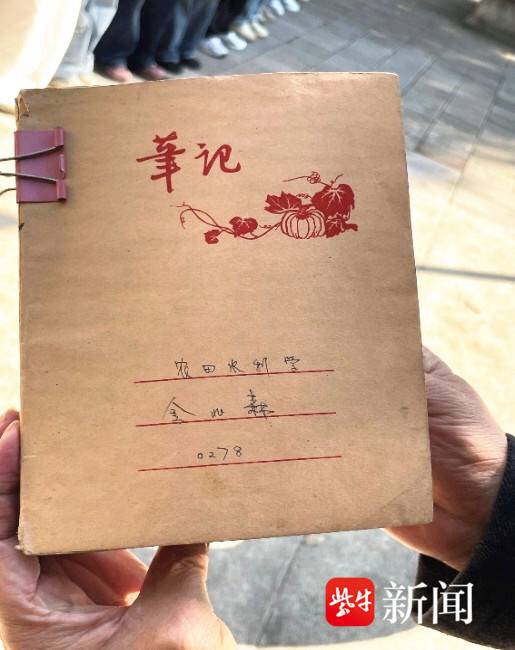 筆记
农田水利学
金兆森
0278
紫牛新闻